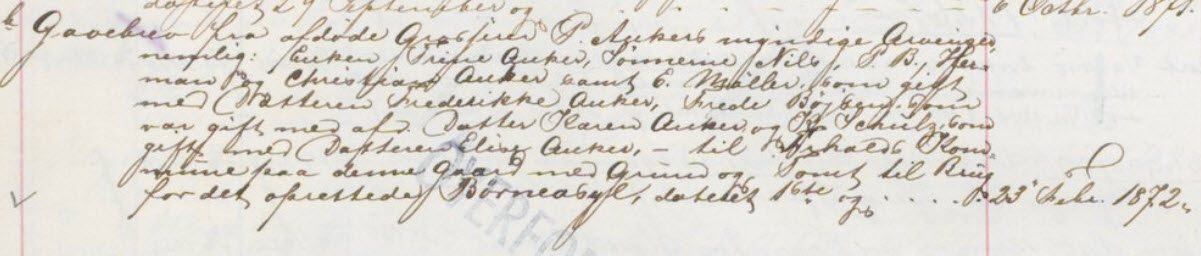 dateret 29 September og 6 Octbr. 1871.
Gavebrev fra afdøde Grosserer P. Ankers myndige Arvinger
nemlig: Enken Trine Anker, Sønnerne Nils, P. B., Her-
man og Christian Anker samt E. Møller, som gift
med Datteren Frederikke Anker, Frede Bøjsen som
var gift med afd. Datter Karen Anker, og Schulz som
gift med Datteren Elise Anker, – til Fr.halds Kom-
mune paa denne Gaard med Grund og Tomt til Brug
for det oprettede Børneasyl, dateret 16de og . . . . . 23 Febr. 1872.
OVERFØ